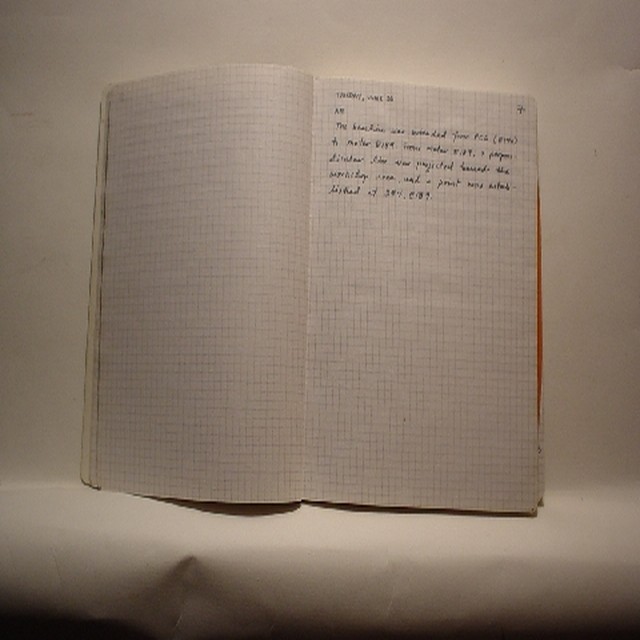 TUESDAY, JUNE 26
The baseline was extended from
to meter E189. From meter E189, a perpen-
dicular line was projected towards the
workshop area, and a point was estab-
lished at